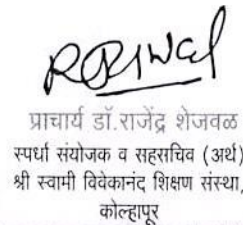 प्राचार्य डॉ.राजेंद्र शेजवळ
स्पर्धा संयोजक व सहसचिव (अर्थ)
श्री स्वामी विवेकानंद शिक्षण संस्था,
कोल्हापूर